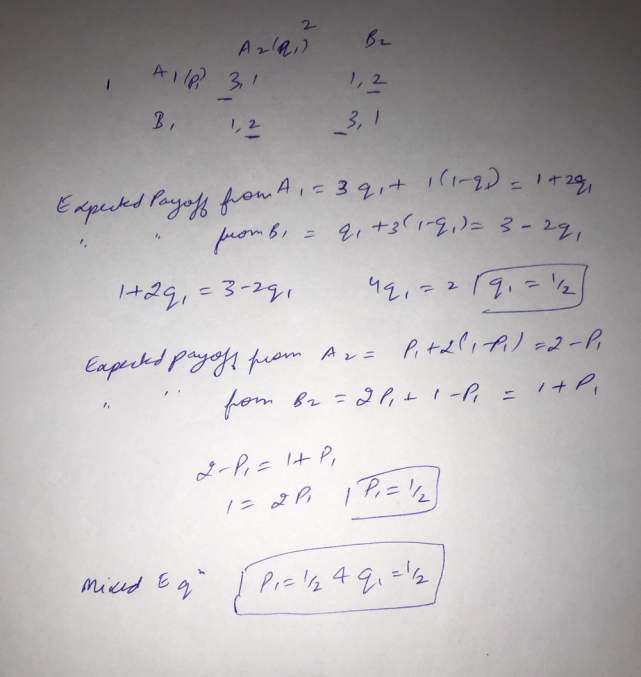 2
A2(q1) B2
1 A1(P) 3,1 1,2
B1 1,2 3,1
Expected Payoff from A1 = 3q1 + 1(1-q1) = 1+2q1
" " from B1 = q1 + 3(1-q1) = 3-2q1
1+2q1 = 3-2q1 4q1 = 2 q1 = 1/2
Expected payoff from A2 = P1 + 2(1-P1) = 2-P1
" " from B2 = 2P1 + 1-P1 = 1+P1
2-P1 = 1+P1
1 = 2P1 P1 = 1/2
Mixed Eqn P1 = 1/2 & q1 = 1/2